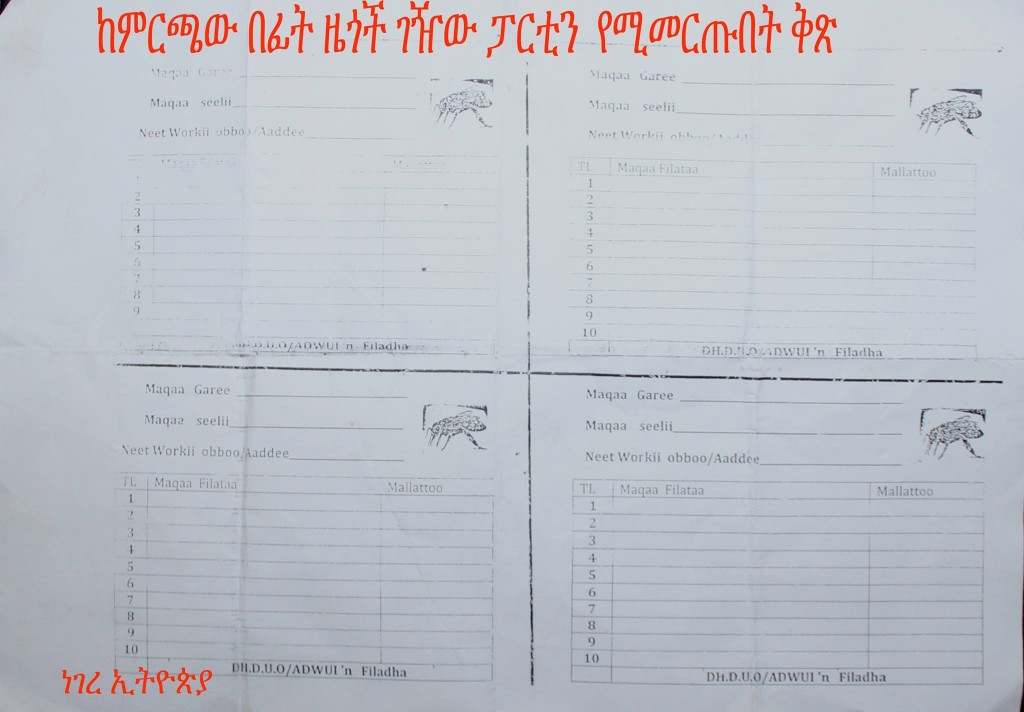 ከምርጫው በፊት ዜጎች ገዥው ፓርቲን የሚመርጡበት ቅጽ
Maqaa Garee
Maqaa seelii
Neet Workii obboo/Aaddee
Maqaa Filataa Mallattoo
1
2
3
4
5
6
7
8
9
DH.D.U.O/ADWUI 'n Filadha
Maqaa Garee
Maqaa seelii
Neet Workii obboo/Aaddee
TL Maqaa Filataa Mallattoo
1
2
3
4
5
6
7
8
9
10
DH.D.U.O/ADWUI 'n Filadha
Maqaa Garee
Maqaa seelii
Neet Workii obboo/Aaddee
TL Maqaa Filataa Mallattoo
1
2
3
4
5
6
7
8
9
10
DH.D.U.O/ADWUI 'n Filadha
Maqaa Garee
Maqaa seelii
Neet Workii obboo/Aaddee
TL Maqaa Filataa Mallattoo
1
2
3
4
5
6
7
8
9
10
DH.D.U.O/ADWUI 'n Filadha
ነገረ ኢትዮጵያ